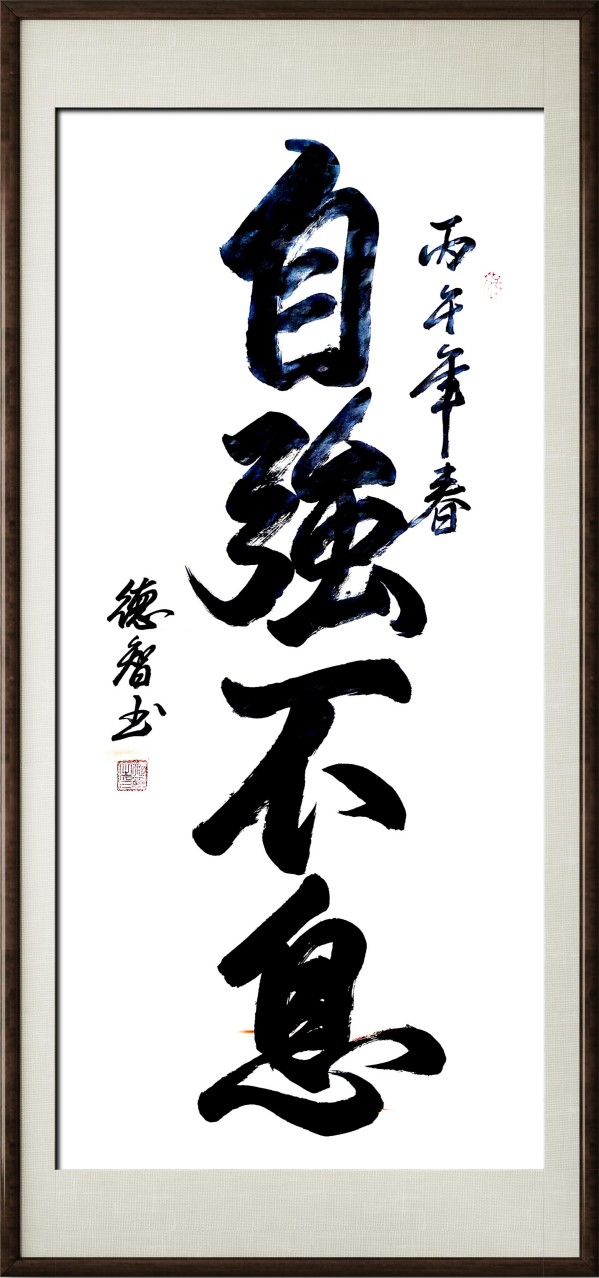 丙午年春
自強不息
德智书